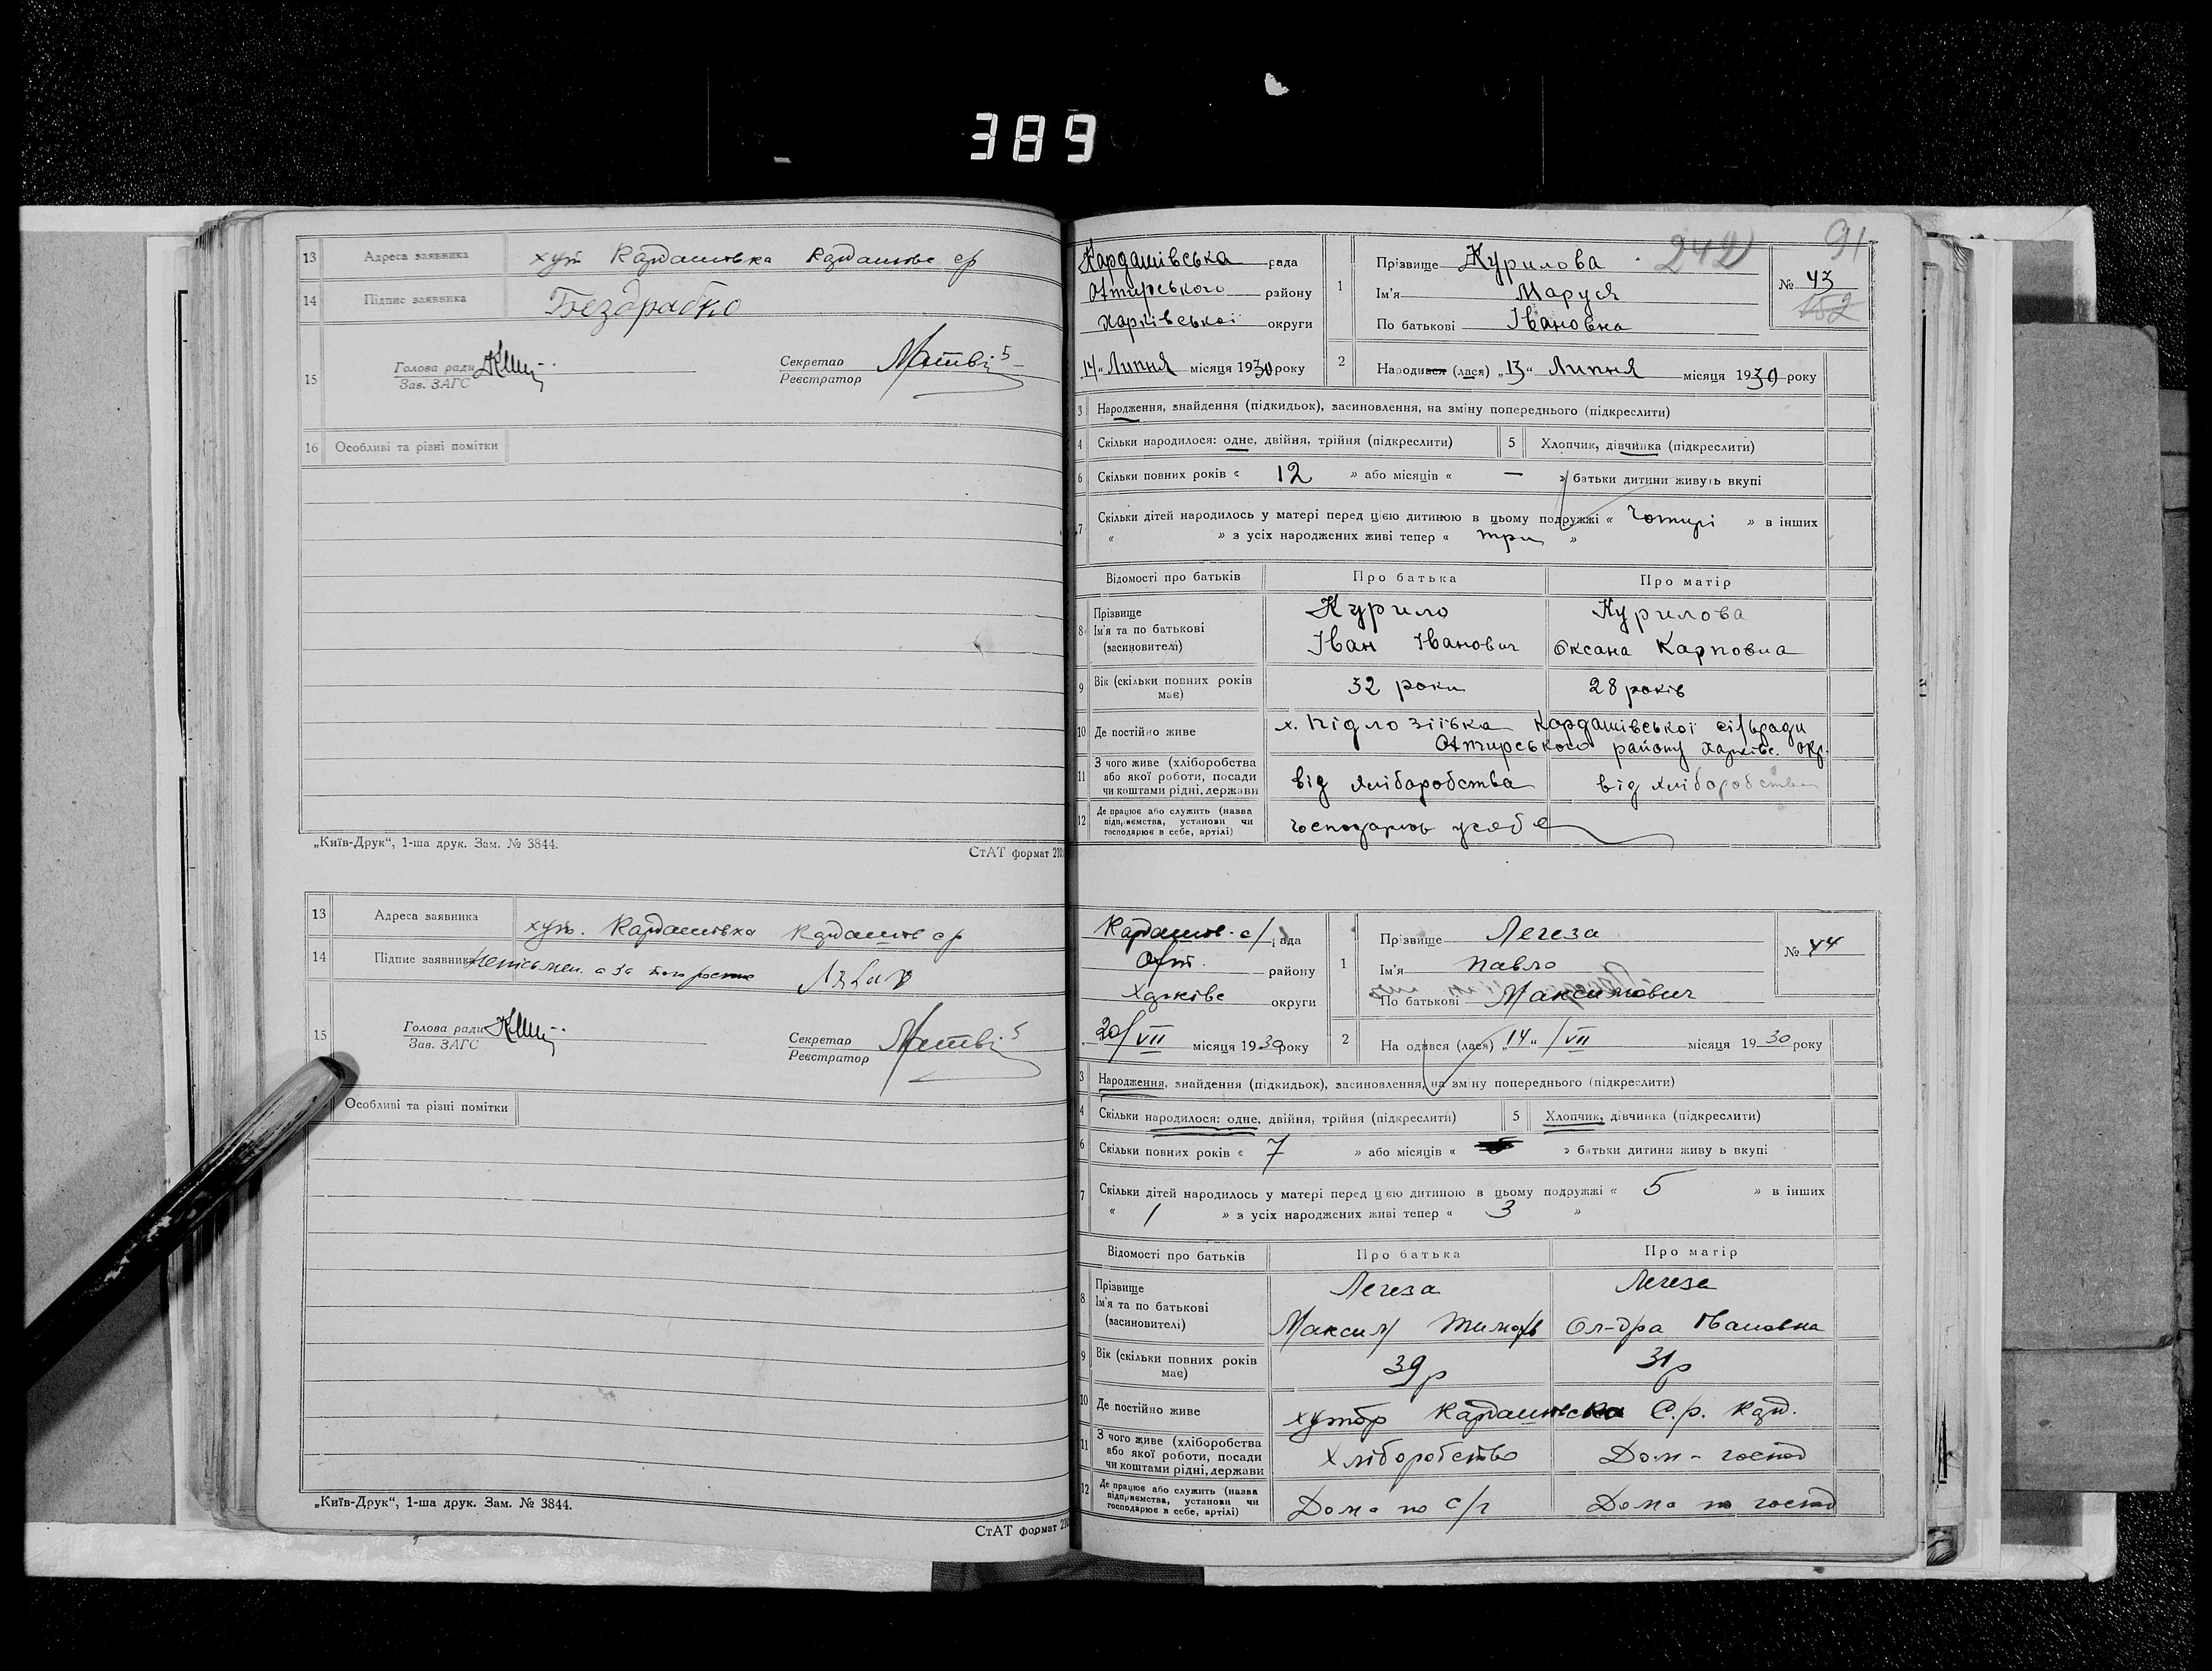 389
13 Адреса заявника хут Кардашовка Кардашове ср
14 Підпис заявника Бездрабко
15 Голова ради
Зав. ЗАГС
Секретар
Реєстратор
16 Особливі та різні помітки
„Київ-Друк“, 1-ша друк. Зам. № 3844.
СтАТ формат
13 Адреса заявника хут. Кардашовка Кардашов ср
14 Підпис заявника неписьмен. а за
15 Голова ради
Зав. ЗАГС
Секретар
Реєстратор
Особливі та різні помітки
„Київ-Друк“, 1-ша друк. Зам. № 3844.
СтАТ формат
242 91
Кардашівська рада
Охтирського району
Харківської округи
„14“ Липня місяця 1930 року
1 Прізвище Курилова
Ім'я Маруся
По батькові Івановна
№ 43
152
2 Народився (лася) „13“ Липня місяця 1930 року
3 Народження, знайдення (підкидьок), засиновлення, на зміну попереднього (підкреслити)
4 Скільки народилося: одне, двійня, трійня (підкреслити) 5 Хлопчик, дівчинка (підкреслити)
6 Скільки повних років « 12 » або місяців « — » батьки дитини живуть вкупі
7 Скільки дітей народилось у матері перед цією дитиною в цьому подружжі « Чотирі » в інших
« » з усіх народжених живі тепер « три »
Відомості про батьків Про батька Про матір
8 Прізвище Курило Курилова
Ім'я та по батькові Іван Іванович Оксана Карповна
(засиновителі)
9 Вік (скільки повних років має) 32 роки 28 років
10 Де постійно живе х. Підлозіївка Кардашівської сільради
Охтирського району Харківс. окр.
11 З чого живе (хліборобства
або якої роботи, посади
чи коштами рідні, держави від хліборобства від хліборобства
12 Де працює або служить (назва
підприємства, установи чи
господарює в себе, артілі) господарює у себе
Кардашов. с/рада
Охт. району
Харківс округи
20/VII місяця 1930 року
1 Прізвище Легеза
Ім'я Павло
По батькові Максимович
№ 44
2 Народився (лася) „14“ /VII місяця 1930 року
3 Народження, знайдення (підкидьок), засиновлення, на зміну попереднього (підкреслити)
4 Скільки народилося: одне, двійня, трійня (підкреслити) 5 Хлопчик, дівчинка (підкреслити)
6 Скільки повних років « 7 » або місяців « » батьки дитини живу ь вкупі
7 Скільки дітей народилось у матері перед цією дитиною в цьому подружжі « 5 » в інших
« 1 » з усіх народжених живі тепер « 3 »
Відомості про батьків Про батька Про матір
8 Прізвище Легеза Легеза
Ім'я та по батькові
(засиновителі) Максим Тимоф Ол-дра Івановна
9 Вік (скільки повних років має) 39 р 31 р
10 Де постійно живе хутор Кардашовска С.р. Кард.
11 З чого живе (хліборобства
або якої роботи, посади
чи коштами рідні, держави Хліборобство Дом - господ
12 Де працює або служить (назва
підприємства, установи чи
господарює в себе, артілі) Дома по с/г Дома по господ